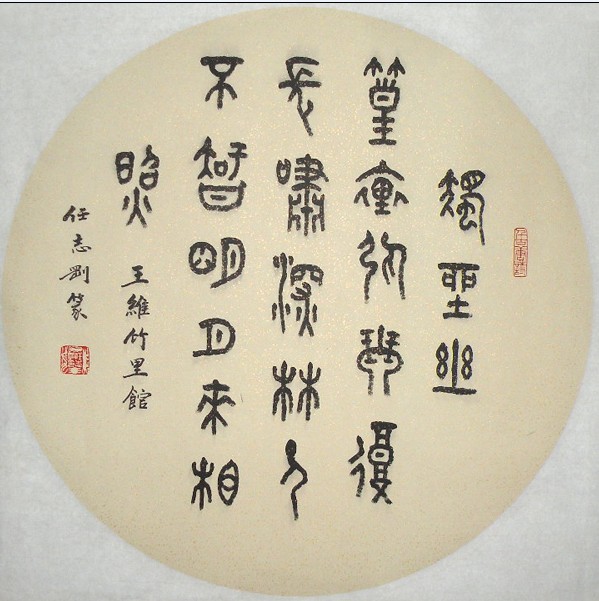 獨坐幽
篁裏彈琴復
長嘯深林人
不智明月來相
照
王維竹里館
任志剛篆